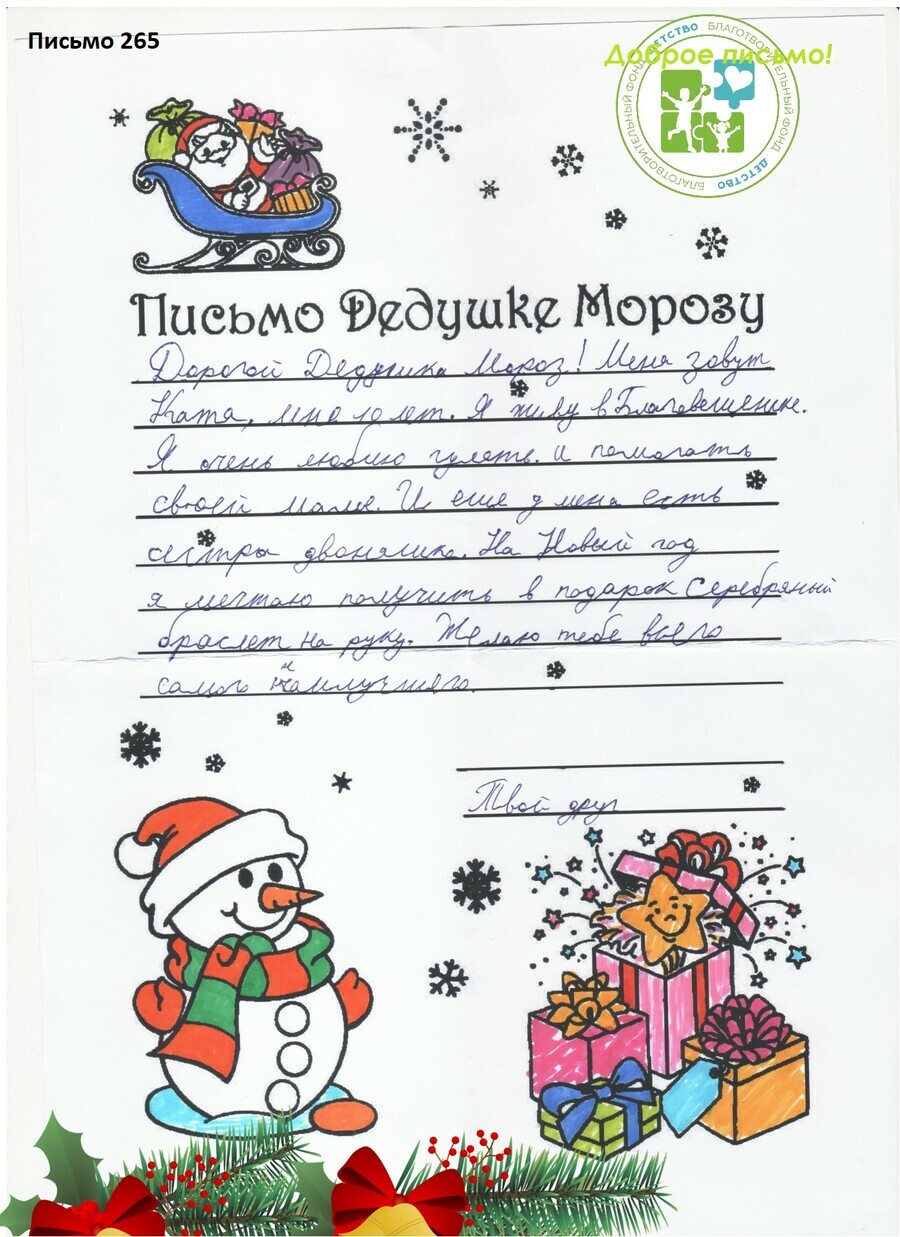 Письмо 265
Доброе письмо!
БЛАГОТВОРИТЕЛЬНЫЙ ФОНД ДЕТСТВО БЛАГОТВОРИТЕЛЬНЫЙ ФОНД ДЕТСТВО
Письмо Дедушке Морозу
Дорогой Дедушка Мороз! Меня зовут
Катя, мне 10 лет. Я живу в Благовещенске.
Я очень люблю гулять и помогать
своей маме. И еще у меня есть
сестра двоняшка. На Новый год
я мечтаю получить в подарок Серебряный
браслет на руку. Желаю тебе всего
самого наилучшего.
Твой друг